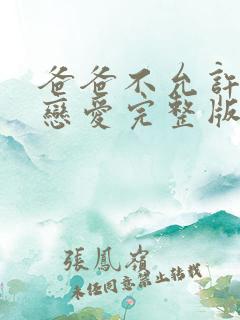 爸爸不允許
戀愛完整版
張鳳嶺
未经同意禁止转载